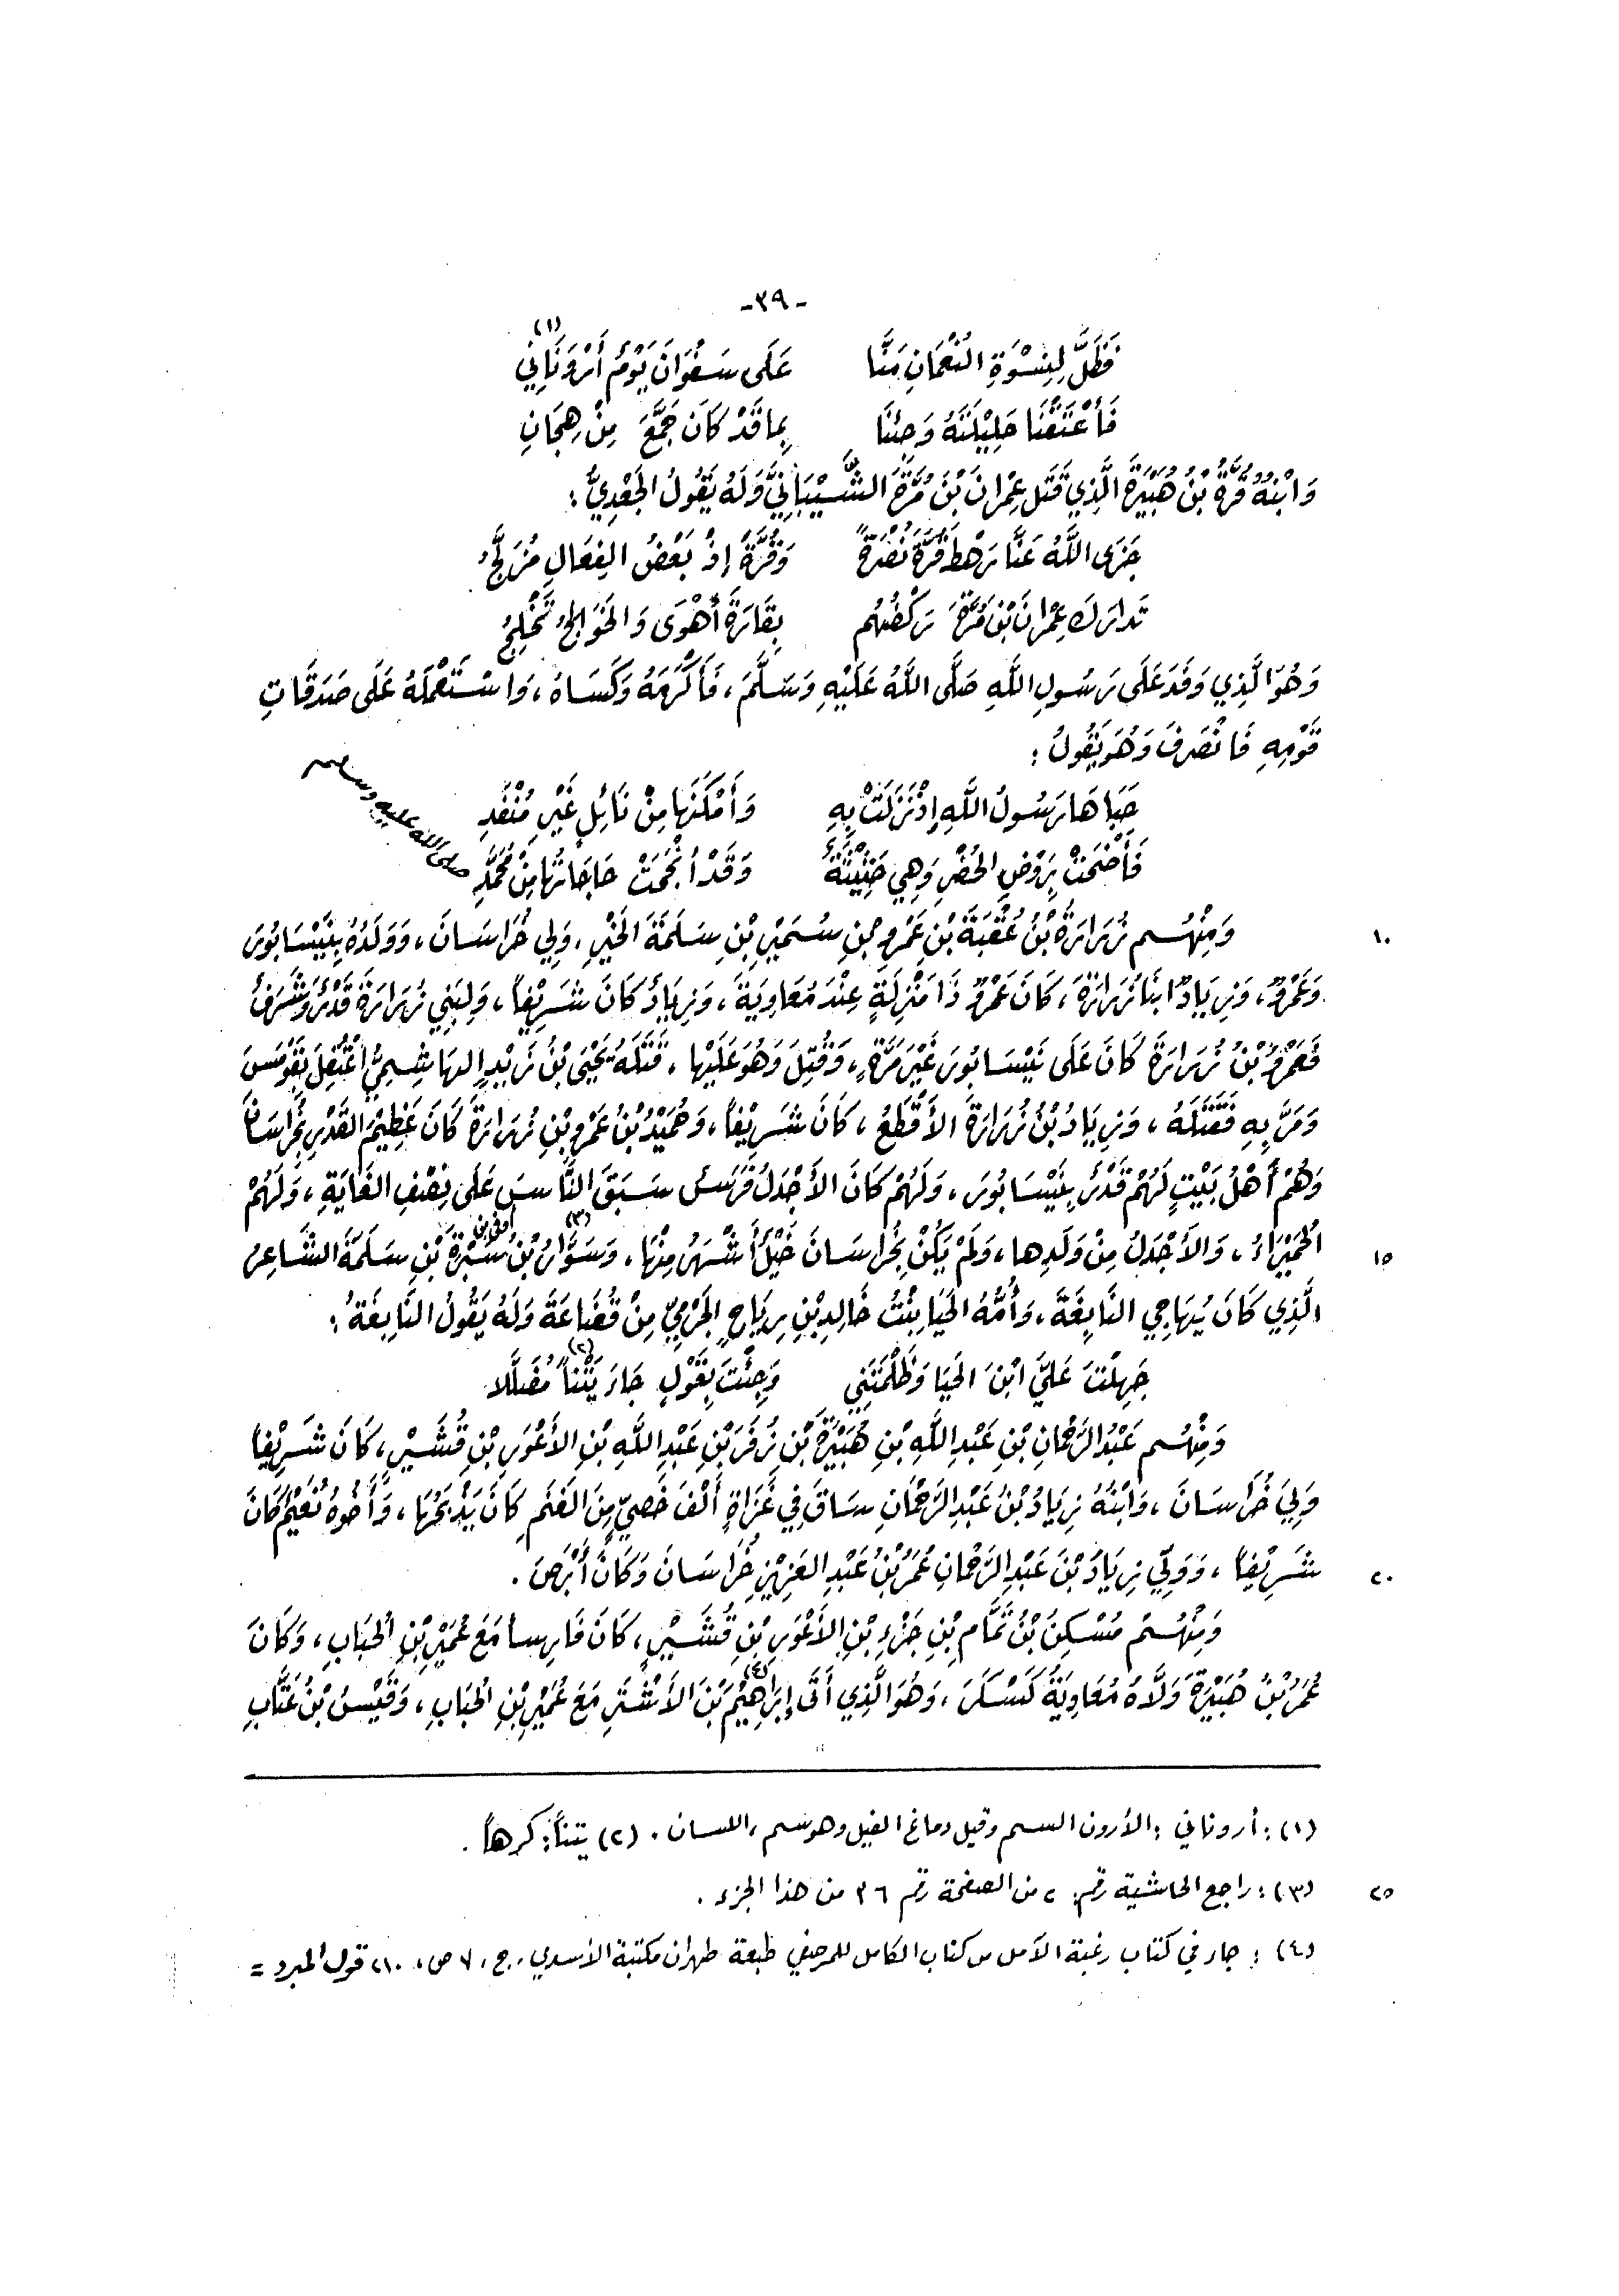 -٣٩-
فَظَلَّ لِنِسْوَةِ النُّعْمَانِ مِنَّا عَلَى سَفَوَانَ يَوْمٌ أَرْوَنَانِي (١)
فَأَعْتَقْنَا حَلِيْلَتَهُ وَجِئْنَا بِمَا قَدْ كَانَ جَمَّعَ مِنْ هِجَانِ
وَابْنُهُ قُرَّةُ بْنُ هُبَيْرَةَ الَّذِي قَتَلَ عِمْرَانَ بْنَ مُرَّةَ الشَّيْبَانِيَّ وَلَهُ يَقُولُ الجَعْدِيُّ :
جَزَى اللَّهُ عَنَّا رَهْطَ قُرَّةَ نُصْرَةً وَقُرَّةَ إِذْ بَعْضُ الفِعَالِ مُزَلَّجُ
تَدَارَكَ عِمْرَانَ بْنَ مُرَّةَ رَكْضُهُم بِقَارَةَ أَهْوَى وَالخَوَالِجُ تَخْلِجُ
وَهُوَ الَّذِي وَفَدَ عَلَى رَسُولِ اللَّهِ صَلَّى اللَّهُ عَلَيْهِ وَسَلَّمَ ، فَأَكْرَمَهُ وَكَسَاهُ ، وَاسْتَعْمَلَهُ عَلَى صَدَقَاتِ
قَوْمِهِ فَانْصَرَفَ وَهُوَ يَقُولُ :
حَبَاهَا رَسُولُ اللَّهِ إِذْ نَزَلَتْ بِهِ وَأَمْكَنَهَا مِنْ نَائِلٍ غَيْرِ مُنْفَدِ
فَأَضْحَتْ بِرَوْضِ الخُضْرِ وَهِي حَثِيْثَةٌ وَقَدْ أَنْجَحَتْ حَاجَاتُهَا مِنْ مُحَمَّدِ صلى الله عليه وسلم
١٠ وَمِنْهُم زُرَارَةُ بْنُ عُقْبَةَ بْنِ عَمْرِو بْنِ سُمَيْرِ بْنِ سَلَمَةَ الخَيْرِ ، وَلِي خُرَاسَانَ ، وَوَلَدُهُ بِنَيْسَابُورَ
وَعَمْرٌو ، وَزِيَادٌ ابْنَا زُرَارَةَ ، كَانَ عَمْرٌو ذَا مَنْزِلَةٍ عِنْدَ مُعَاوِيَةَ ، وَزِيَادٌ كَانَ شَرِيْفاً ، وَلِبَنِي زُرَارَةَ قَدْرٌ وَشَرَفٌ
فَعَمْرُو بْنُ زُرَارَةَ كَانَ عَلَى نَيْسَابُورَ غَيْرَ مَرَّةٍ ، وَقُتِلَ وَهُوَ عَلَيْهَا ، قَتَلَهُ يَحْيَى بْنُ زَيْدٍ الهَاشِمِيُّ اعْتُقِلَ بِقُومَسَ
وَمَرَّ بِهِ فَقَتَلَهُ ، وَزِيَادُ بْنُ زُرَارَةَ الأَقْطَعُ ، كَانَ شَرِيْفاً ، وَحُمَيْدُ بْنُ عَمْرِو بْنِ زُرَارَةَ كَانَ عَظِيْمَ القَدْرِ بِخُرَاسَانَ
وَهُمْ أَهْلُ بَيْتٍ لَهُمْ قَدْرٌ بِنَيْسَابُورَ ، وَلَهُمْ كَانَ الأَجْدَلُ فَرَسٌ سَبَقَ النَّاسَ عَلَى نِصْفِ الغَايَةِ ، وَلَهُمْ
١٥ الحُمَيْرَاءُ ، وَالأَجْدَلُ مِنْ وَلَدِهَا ، وَلَمْ يَكُنْ بِخُرَاسَانَ خَيْلٌ أَشْهَرُ مِنْهَا ، وَسَوَّارُ بْنُ (٣) أوفى بن سَبْرَةَ بْنِ سَلَمَةَ الشَّاعِرُ
الَّذِي كَانَ يُهَاجِي النَّابِغَةَ ، وَأُمُّهُ الحَيَا بِنْتُ خَالِدِ بْنِ رِيَاحٍ الجَرْمِيِّ مِنْ قُضَاعَةَ وَلَهُ يَقُولُ النَّابِغَةُ :
جَهِلْتَ عَلَيَّ ابْنَ الحَيَا وَظَلَمْتَنِي وَجِئْتَ بِقَوْلٍ جَاءَ يَتْناً (٢) مُضَلَّلا
وَمِنْهُم عَبْدُ الرَّحْمَانِ بْنِ عَبْدِ اللَّهِ بْنِ هُبَيْرَةَ بْنِ زُفَرَ بْنِ عَبْدِ اللَّهِ بْنِ الأَعْوَرِ بْنِ قُشَيْرٍ ، كَانَ شَرِيْفاً
وَلِيَ خُرَاسَانَ ، وَابْنُهُ زِيَادُ بْنُ عَبْدِ الرَّحْمَانِ سَاقَ فِي غَزَاةٍ أَلْفَ خَصِيٍّ مِنَ الغَنَمِ كَانَ يَذْبَحُهَا ، وَأَخُوهُ نُعَيْمٌ كَانَ
٢٠ شَرِيْفاً ، وَوَلِّي زِيَادَ بْنَ عَبْدِ الرَّحْمَانِ عُمَرُ بْنُ عَبْدِ العَزِيْزِ خُرَاسَانَ وَكَانَ أَبْرَصَ .
وَمِنْهُم مُسْكِنُ بْنُ تَمَّامِ بْنِ جَزْءِ بْنِ الأَعْوَرِ بْنِ قُشَيْرٍ ، كَانَ فَارِسا مَعَ عُمَيْرِ بْنِ الحُبَابِ ، وَكَانَ
عُمَرُ بْنُ هُبَيْرَةَ وَلَّاهُ مُعَاوِيَةُ كَسْكَرَ ، وَهُوَ الَّذِي أَتَى إِبْرَاهِيْمَ (٤) بْنَ الأَشْتَرِ مَعَ عُمَيْرِ بْنِ الحُبَابِ ، وَقَيْسُ بْنُ عَتَّابِ
(١) : أروناني : الأرون السم وقيل دماغ الفيل وهو سم ، اللسان . (٢) يتناً : كرهاً .
٢٥ (٣) : راجع الحاشية رقم : ٢ من الصفحة رقم ٣٦ من هذا الجزء .
(٤) : جاء في كتاب رغبة الآمل من كتاب الكامل للمرصفي طبعة طهران مكتبة الأسدي ، ج ، ٧ ص ، ٢١٠ قول المبرد =